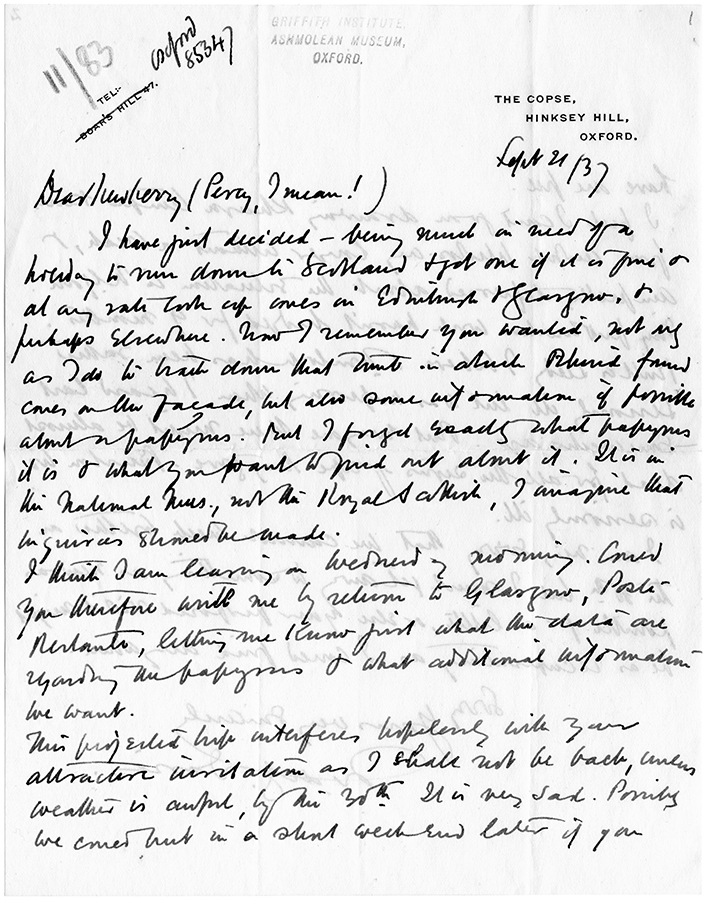 1
11/83
Oxford
85347
TEL:-
BOAR'S HILL 47.
GRIFFITH INSTITUTE,
ASHMOLEAN MUSEUM,
OXFORD.
THE COPSE,
HINKSEY HILL,
OXFORD.
Sept 21/37
Dear Newberry (Percy, I mean!)
I have just decided – being much in need of a
holiday to run down to Scotland & get one if it is fine &
at any rate look up cones in Edinburgh & Glasgow, &
perhaps elsewhere. Now I remember you wanted, not only
as I do to track down that tomb in which Rhind found
cones on the façade, but also some information if possible
about a papyrus. But I forget exactly what papyrus
it is & what you want to find out about it. It is in
the National Mus., not the Royal Scottish, I imagine that
inquiries should be made.
I think I am leaving on Wednesday morning. Could
you therefore write me by return to Glasgow, Poste
Restante, letting me know just what the data are
regarding the papyrus & what additional information
we want.
This projected trip interferes hopelessly with your
attractive invitation as I shall not be back, unless
weather is awful, by the 30th. It is very sad. Possibly
we could put in a short weekend later if you